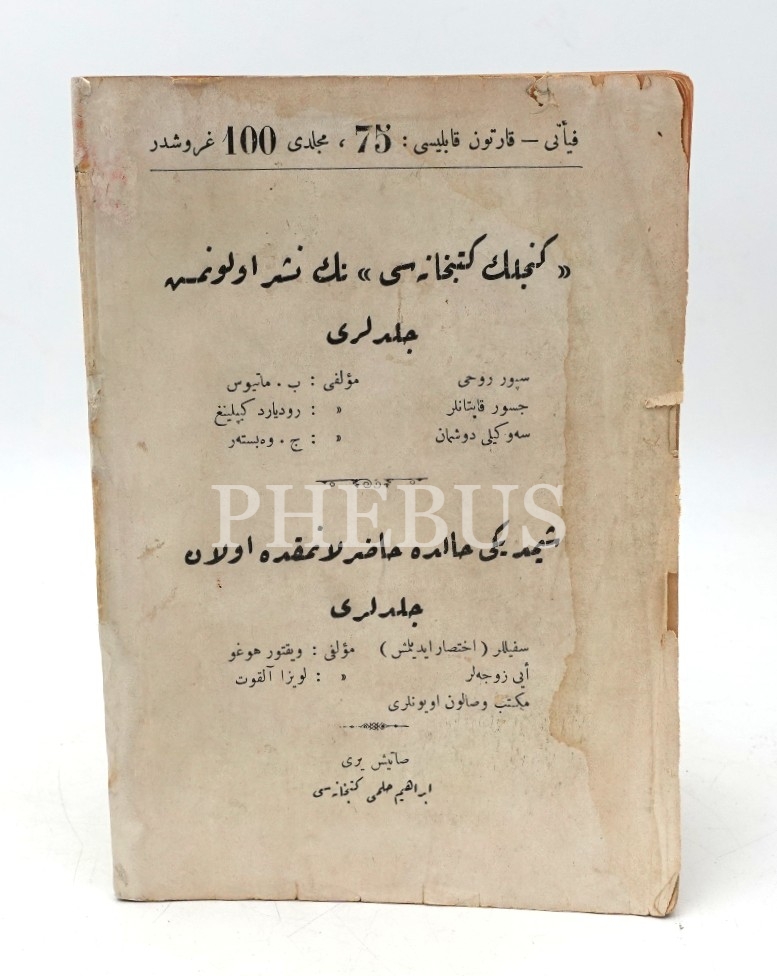 فيأتى — قارتون قابليسى : 75 ، مجلدى 100 غروشدر
« كنجلك كتبخانه سى » نك نشر اولونمش
جلدلرى
سپور روحى مؤلفى : ب . ماتيوس
جسور قاپتانلر » : روديارد كيپلينغ
سه وكيلى دوشمان » : ج . وه بسته ر
PHEBUS
شيمديكى حالده حاضرلانمقده اولان
جلدلرى
سفيللر ( اختصار ايديلمش ) مؤلفى : ويقتور هوغو
أيى زوجه لر » : لويزا آلقوت
مكتب وصالون اويونلرى
صاتيش يرى
ابراهيم حلمى كتبخانه سى